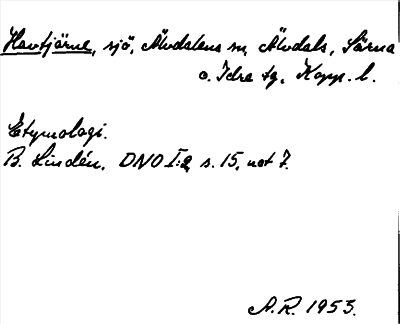 Havtjärne, sjö, Älvdalens sn, Älvdals, Särna
o. Idre tg, Kopp. l.
Etymologi.
B. Lindén, DNO I:2, s. 15, not 7.
A. R. 1953.